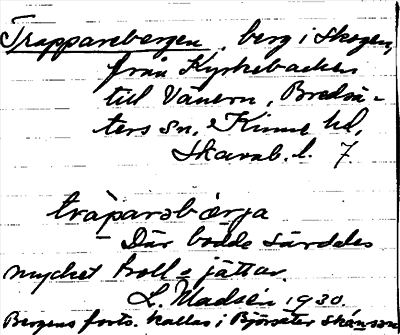 Trapparebergen, berg i Skogen,
från Kyrkebacken
till Vänern, Bredsä-
ters sn, Kinne hd,
Skarab. l. 7.
tràparəbærja
– Där bodde särdeles
mycket troll o jättar.
L. Madsén 1930.
Bergens forts. kallas i Björsäter Skånsen